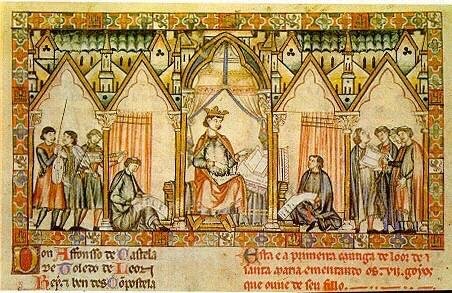 Don Affonso de Castela
de Toledo de Leon
Rey e ben des Cõpostela
Esta e a primeira cantiga de loor de
santa maria ementando os .vii. goyos
que ouue de seu fillo.